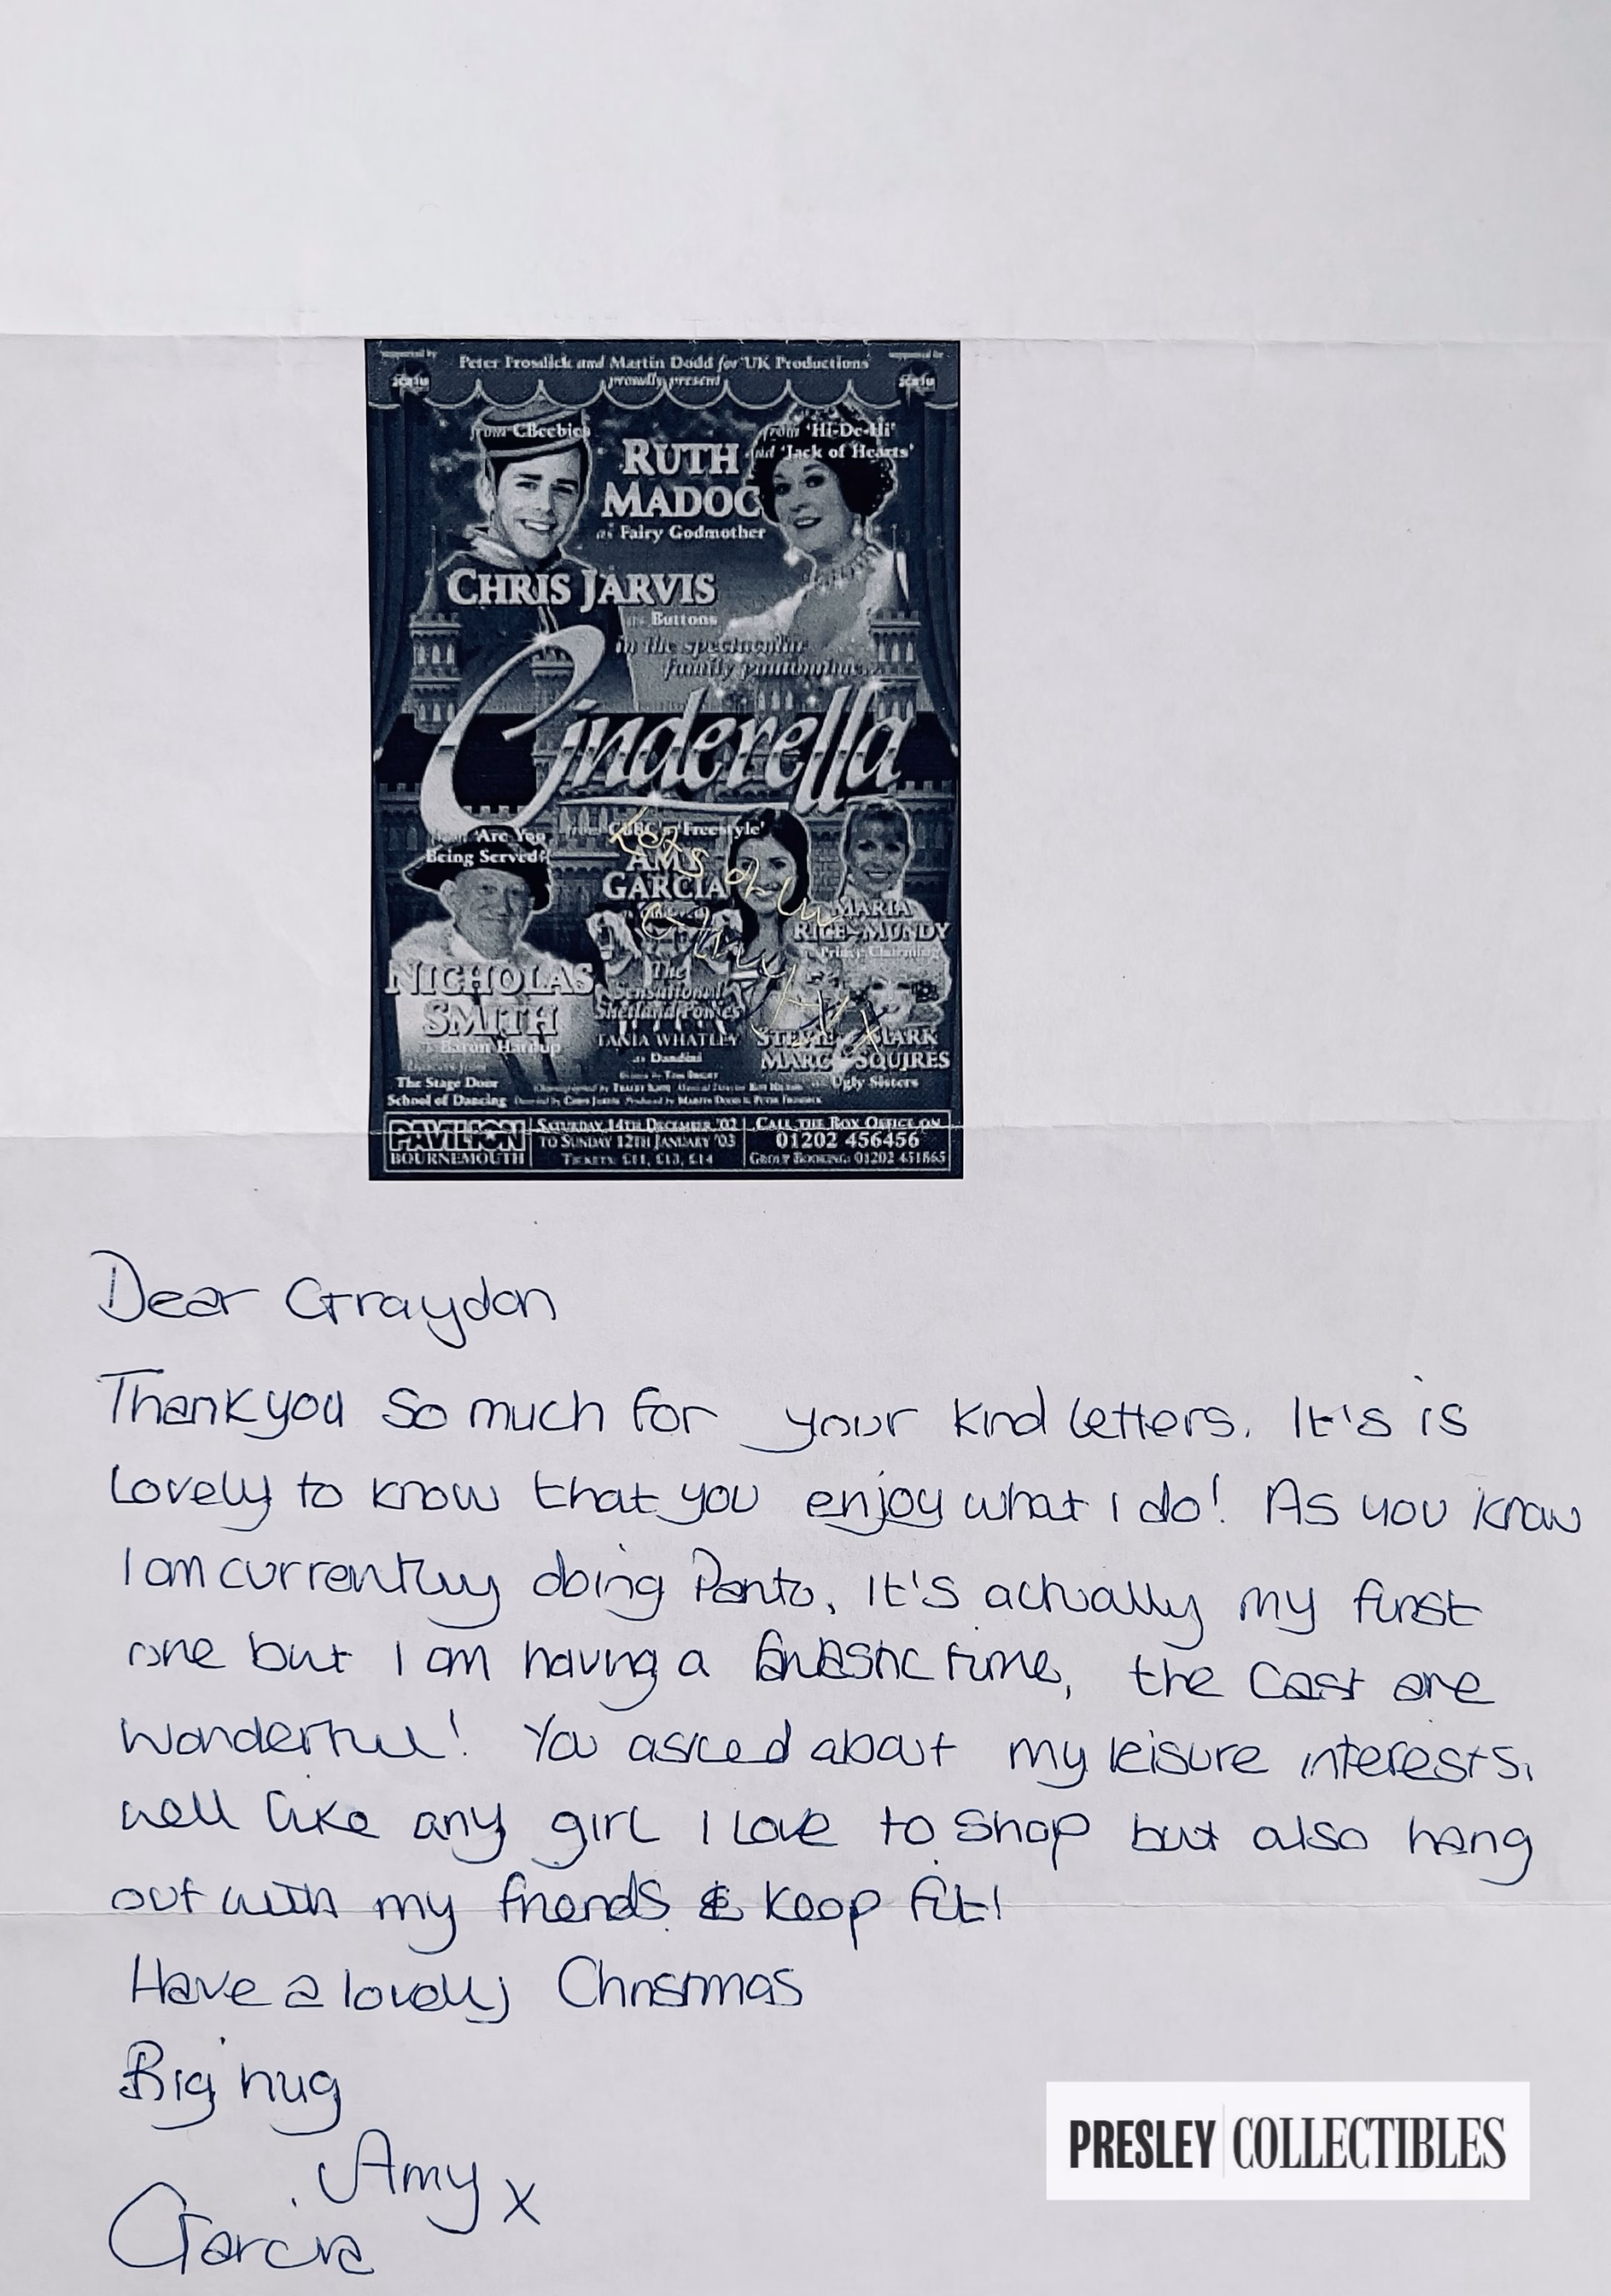 Peter Frosdick and Martin Dodd for UK Productions
proudly present
from CBeebies
from 'Hi-De-Hi'
and 'Jack of Hearts'
RUTH
MADOC
as Fairy Godmother
CHRIS JARVIS
as Buttons
in the spectacular
family pantomime...
Cinderella
'Are You
Being Served?'
from CBBC's 'Freestyle'
AMY
GARCIA
Lots of luv
Amy xx
MARIA
RICE-MUNDY
Prince Charming
NICHOLAS
SMITH
Baron Hardup
The
Sensational
Shetland Ponies
TANIA WHATLEY
as Dandini
STEVIE MARK
MARC SQUIRES
Ugly Sisters
The Stage Door
School of Dancing
PAVILION
BOURNEMOUTH
SATURDAY 14TH DECEMBER '02
TO SUNDAY 12TH JANUARY '03
TICKETS: £11, £13, £14
CALL THE BOX OFFICE ON
01202 456456
GROUP BOOKING: 01202 451865
Dear Graydon
Thankyou so much for your kind letters. It's is
lovely to know that you enjoy what I do! As you know
I am currently doing Panto, It's actually my first
one but I am having a time, the cast are
wonderful! You asked about my leisure interests,
well like any girl I love to shop but also hang
out with my friends & keep fit!
Have a lovely Christmas
Big hug
Amy x
Garcia
PRESLEY COLLECTIBLES